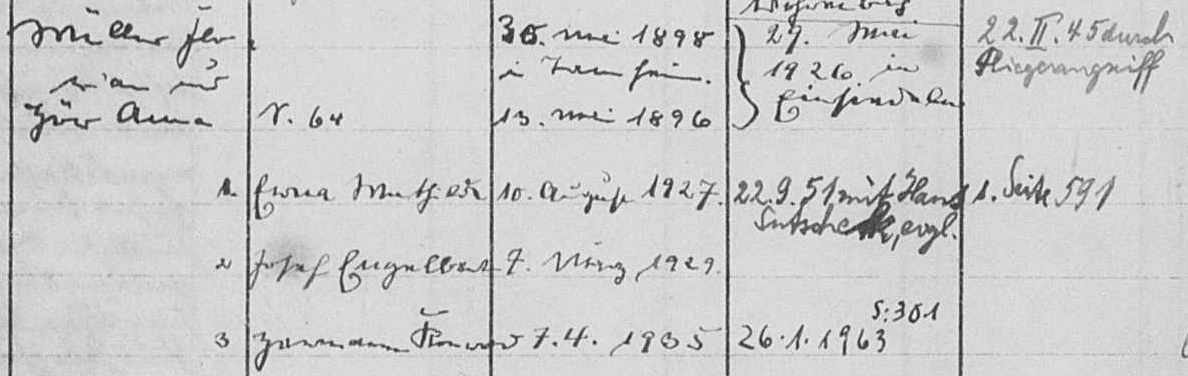 Müller
30. Mai 1898
27. Mai
22. II. 45 durch
in
1926 in
Fliegerangriff
Anna
S. 64
13. Mai 1896
Einsiedeln
1. Erna Mathilde 10. August 1927. 22.9.51 mit Hans s. Seite 591
evgl.
2 Josef Engelbert 7. März 1929.
S: 381
3 Hermann Konrad 7.4. 1935 26.1.1963